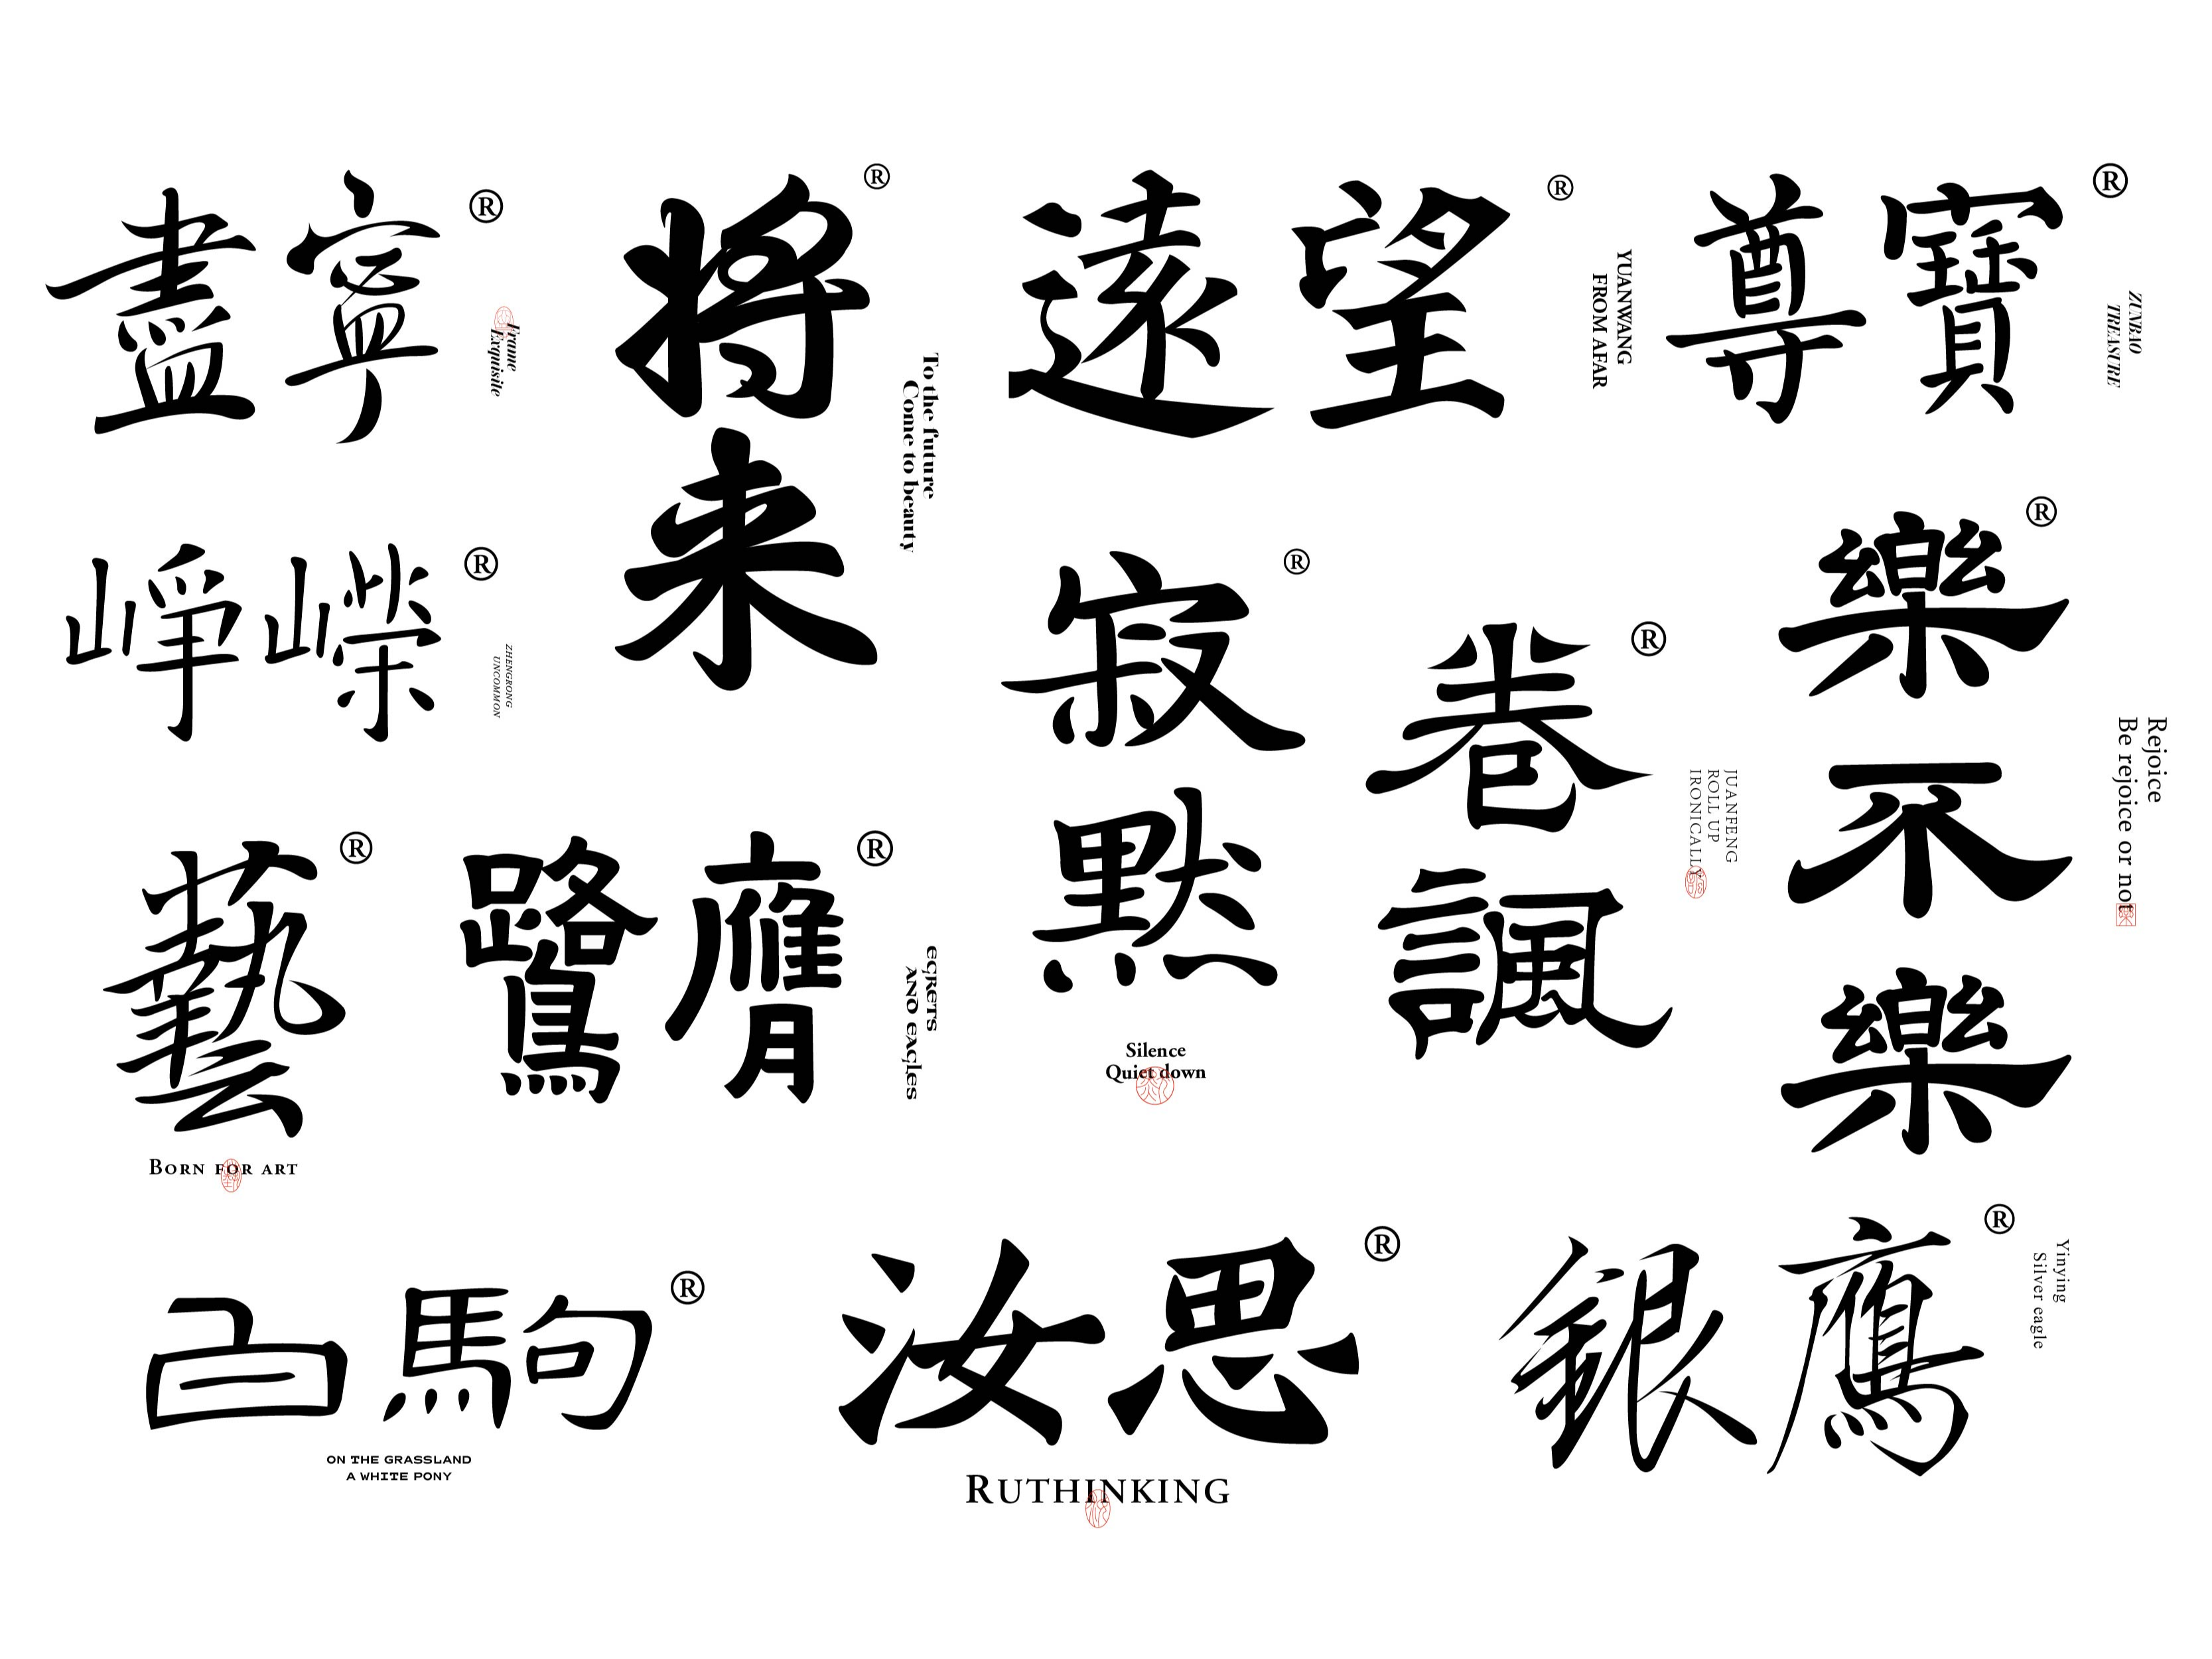 盡寧
®
Frame
Exquisite
将来
®
To the future
Come to beauty
遠望
®
YUANWANG
FROM AFAR
尊寶
®
ZUNBAO
TREASURE
崢嶸
®
ZHENGRONG
UNCOMMON
寂默
®
Silence
Quiet down
巷諷
®
JUANFENG
ROLL UP
IRONICALLY
樂不樂
®
Rejoice
Be rejoice or not
藝
®
BORN FOR ART
鷺膺
®
EGRETS
AND EAGLES
白馬句
®
ON THE GRASSLAND
A WHITE PONY
汝思
®
RUTHINKING
銀鷹
®
Yinying
Silver eagle